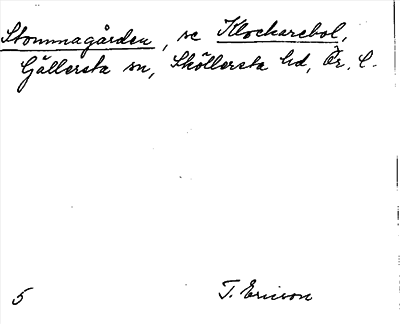 Stommagården, se Klockarebol,
Gällersta sn, Sköllersta hd, Ör. l.
5 T. Ericson